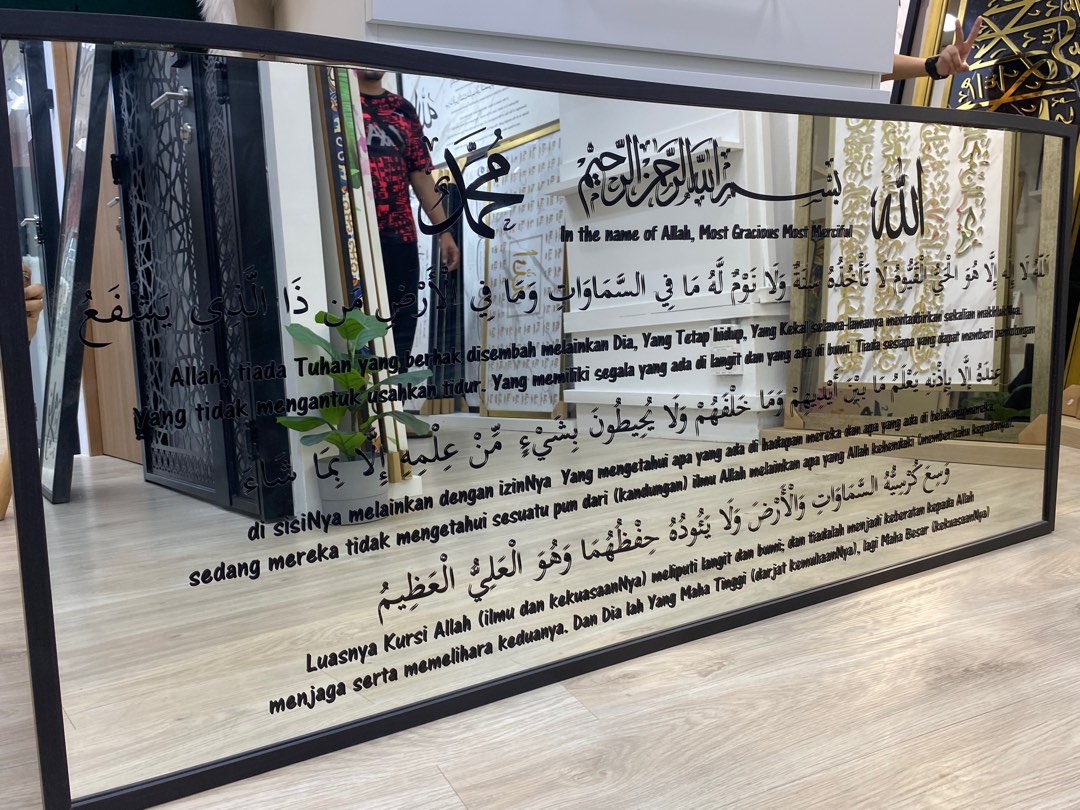 الله بسم الله الرحمن الرحيم محمد
In the name of Allah, Most Gracious Most Merciful
اللَّهُ لَا إِلَهَ إِلَّا هُوَ الْحَيُّ الْقَيُّومُ لَا تَأْخُذُهُ سِنَةٌ وَلَا نَوْمٌ لَّهُ مَا فِي السَّمَاوَاتِ وَمَا فِي الْأَرْضِ مَن ذَا الَّذِي يَشْفَعُ
Allah, tiada Tuhan yang berhak disembah melainkan Dia, Yang Tetap hidup, Yang Kekal selama-lamanya mentadbirkan sekalian makhlukNya.
Yang tidak mengantuk usahkan tidur. Yang memiliki segala yang ada di langit dan yang ada di bumi. Tiada sesiapa yang dapat memberi pertolongan
عِندَهُ إِلَّا بِإِذْنِهِ يَعْلَمُ مَا بَيْنَ أَيْدِيهِمْ وَمَا خَلْفَهُمْ وَلَا يُحِيطُونَ بِشَيْءٍ مِّنْ عِلْمِهِ إِلَّا بِمَا شَاءَ
di sisiNya melainkan dengan izinNya Yang mengetahui apa yang ada di hadapan mereka dan apa yang ada di belakang mereka.
sedang mereka tidak mengetahui sesuatu pun dari (kandungan) ilmu Allah melainkan apa yang Allah kehendaki (memberitahu kepadanya).
وَسِعَ كُرْسِيُّهُ السَّمَاوَاتِ وَالْأَرْضَ وَلَا يَئُودُهُ حِفْظُهُمَا وَهُوَ الْعَلِيُّ الْعَظِيمُ
Luasnya Kursi Allah (ilmu dan kekuasaanNya) meliputi langit dan bumi; dan tiadalah menjadi keberatan kepada Allah
menjaga serta memelihara keduanya. Dan Dia lah Yang Maha Tinggi (darjat kemuliaanNya), lagi Maha Besar (kekuasaanNya)